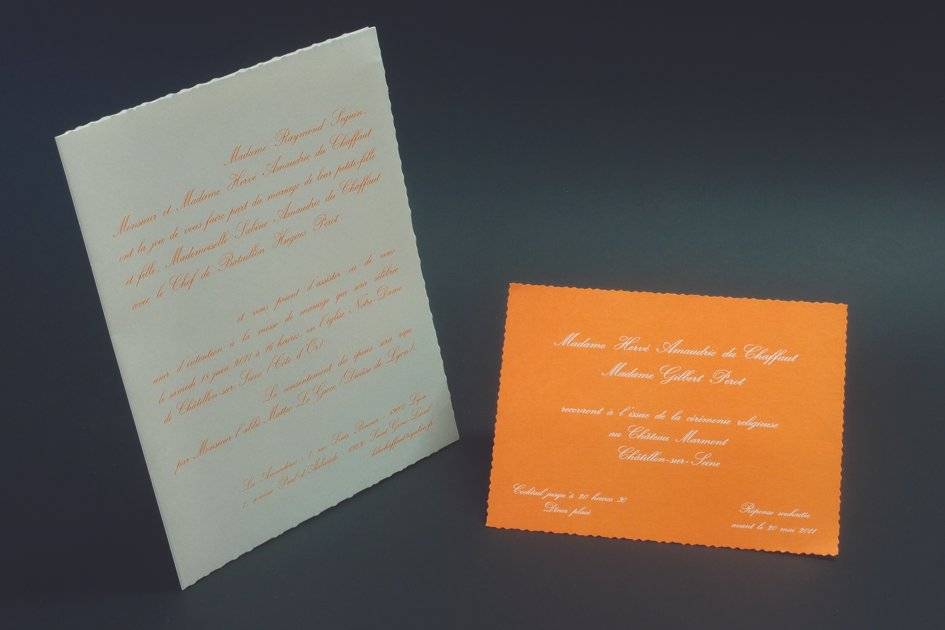 Madame Raymond Seguin,
Monsieur et Madame Hervé Amaudric du Chaffaut
ont la joie de vous faire part du mariage de leur petite-fille
et fille, Mademoiselle Sabine Amaudric du Chaffaut
avec le Chef de Bataillon Hugues Perot
et vous prient d'assister ou de vous
unir d'intention à la messe de mariage qui sera célébrée
le samedi 18 juin 2011 à 16 heures en l'église Notre-Dame
de Châtillon-sur-Seine (Côte d'Or)
Le consentement des époux sera reçu
par Monsieur l'abbé Matteo Lo Gioco (Diocèse de Lyon)
Lyon
Madame Hervé Amaudric du Chaffaut
Madame Gilbert Perot
recevront à l'issue de la cérémonie religieuse
au Château Marmont
Châtillon-sur-Seine
Cocktail jusqu'à 20 heures 30
Dîner placé
Réponse souhaitée
avant le 20 mai 2011